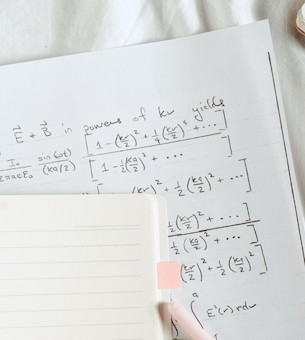 E + B in powers of kr yields
I₀ / 2πacε₀ sin(ωt) / (ka/2) [1 - (kr/2)² + 1/4 (kr/2)⁴ + ...] / [1 - 1/2 (ka/2)² + ...]
(kr/2)² + 1/2 (ka/2)² + ...]
1/2 (kr/2)² + ...]
1/2 (ka/2)² + ...]
(kr/2)² + 1/2 (ka/2)²]
∫ᵃ E²(r) r dr